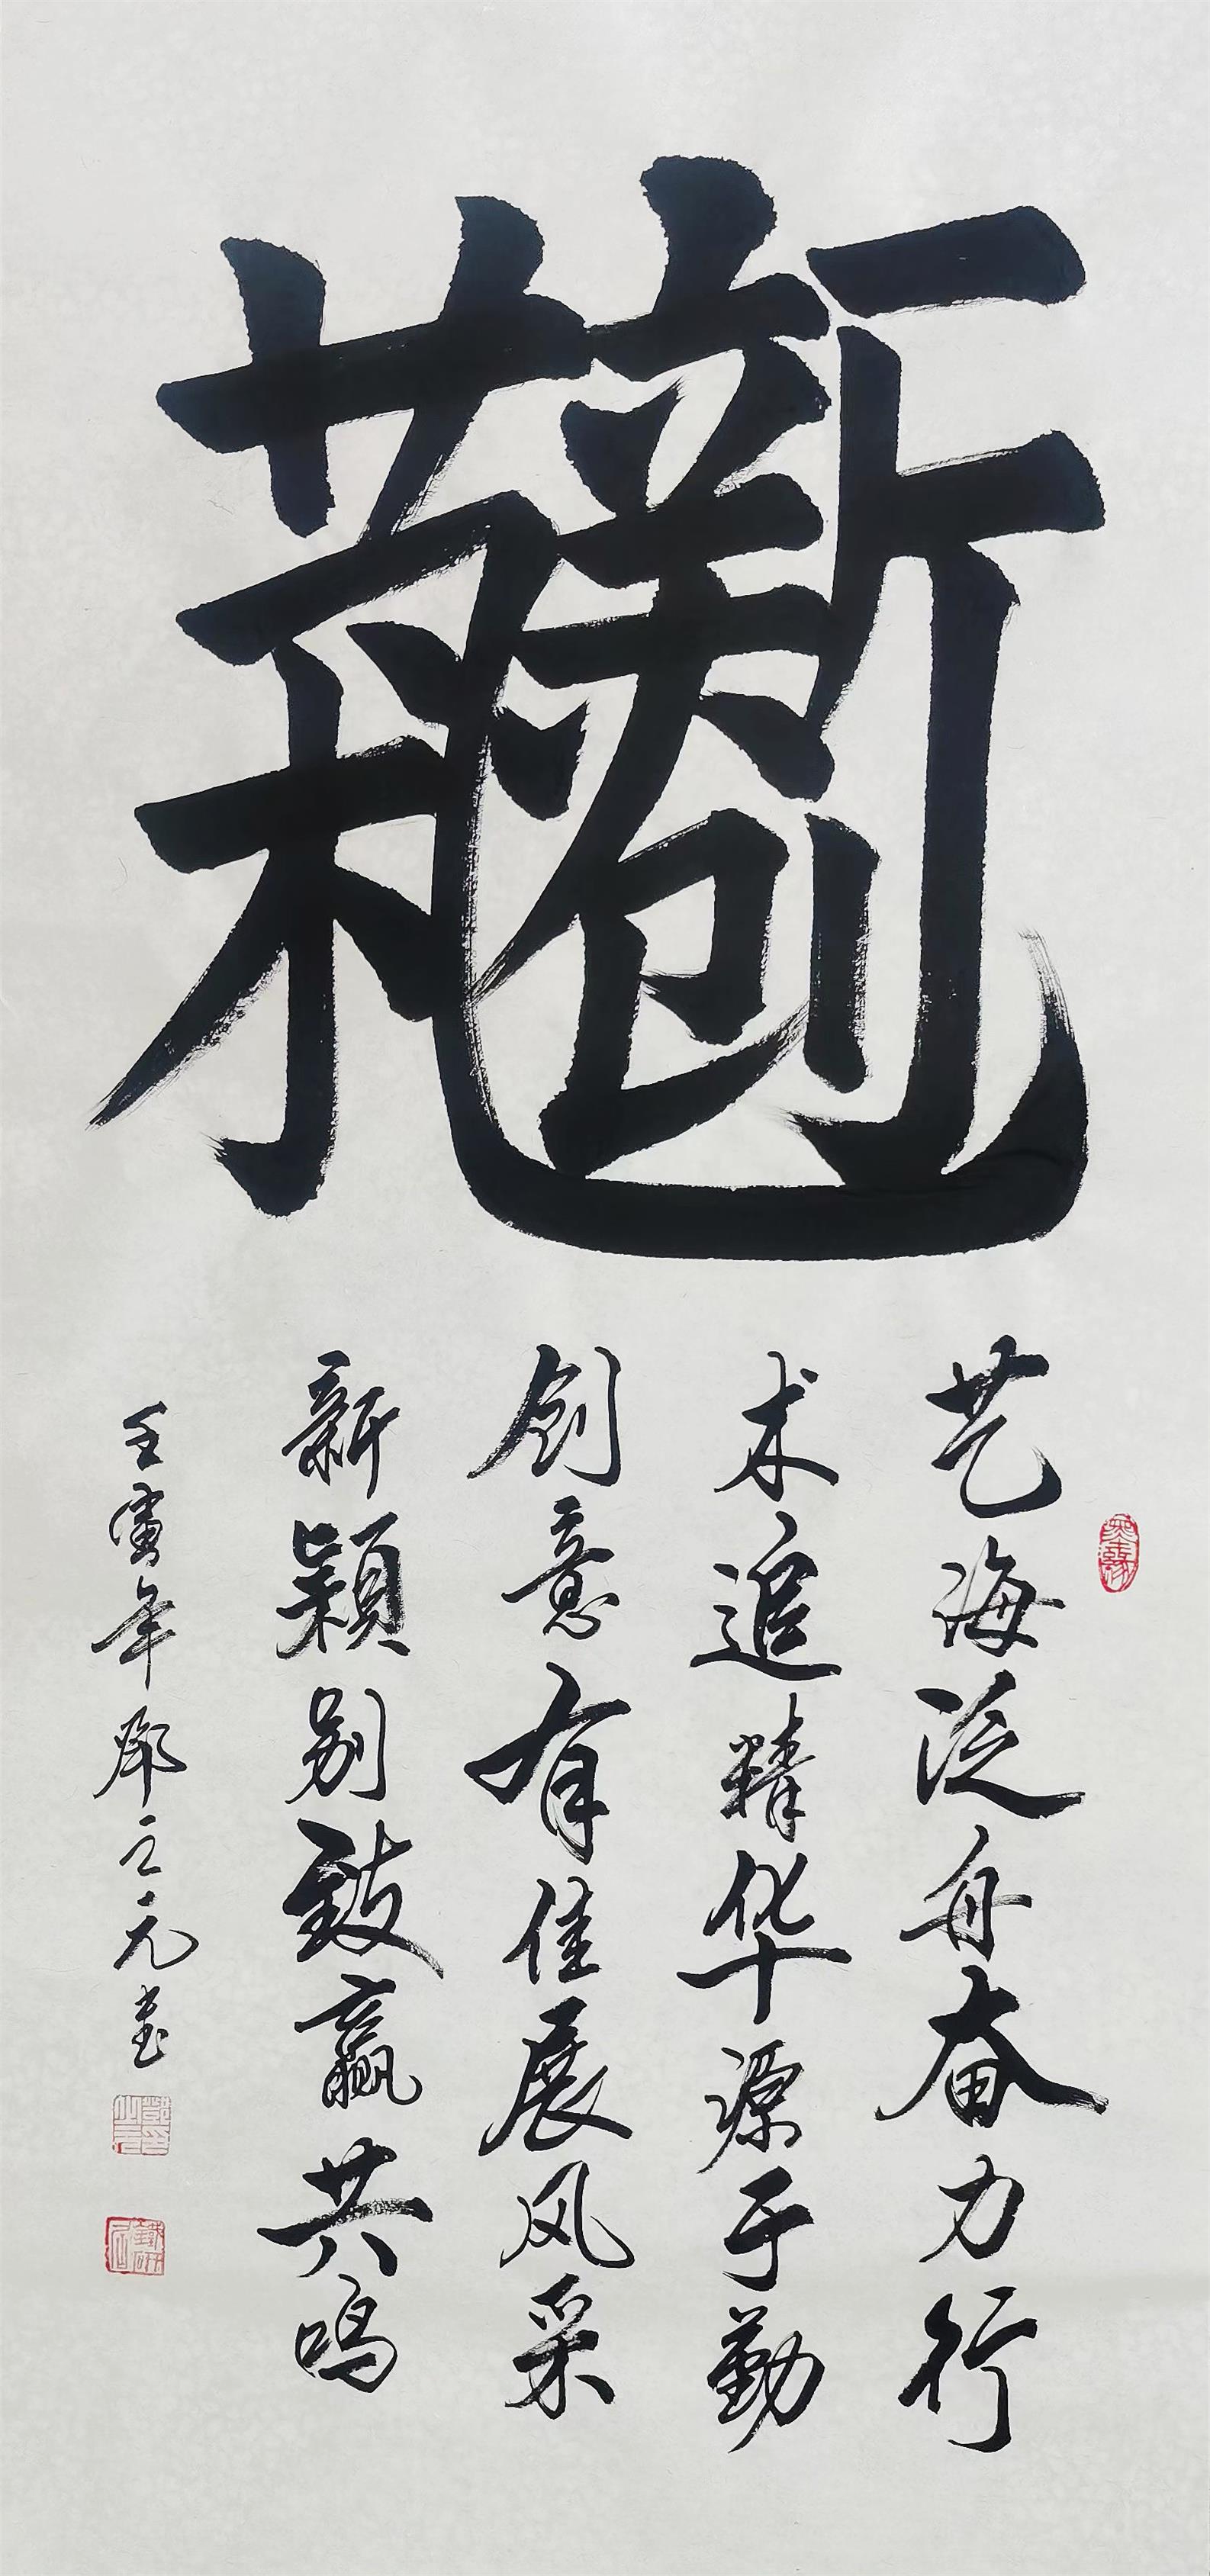 艺术创新
艺海泛舟奋力行
术追精华源于勤
创意有佳展风采
新颖别致赢共鸣
壬寅年邓之元书